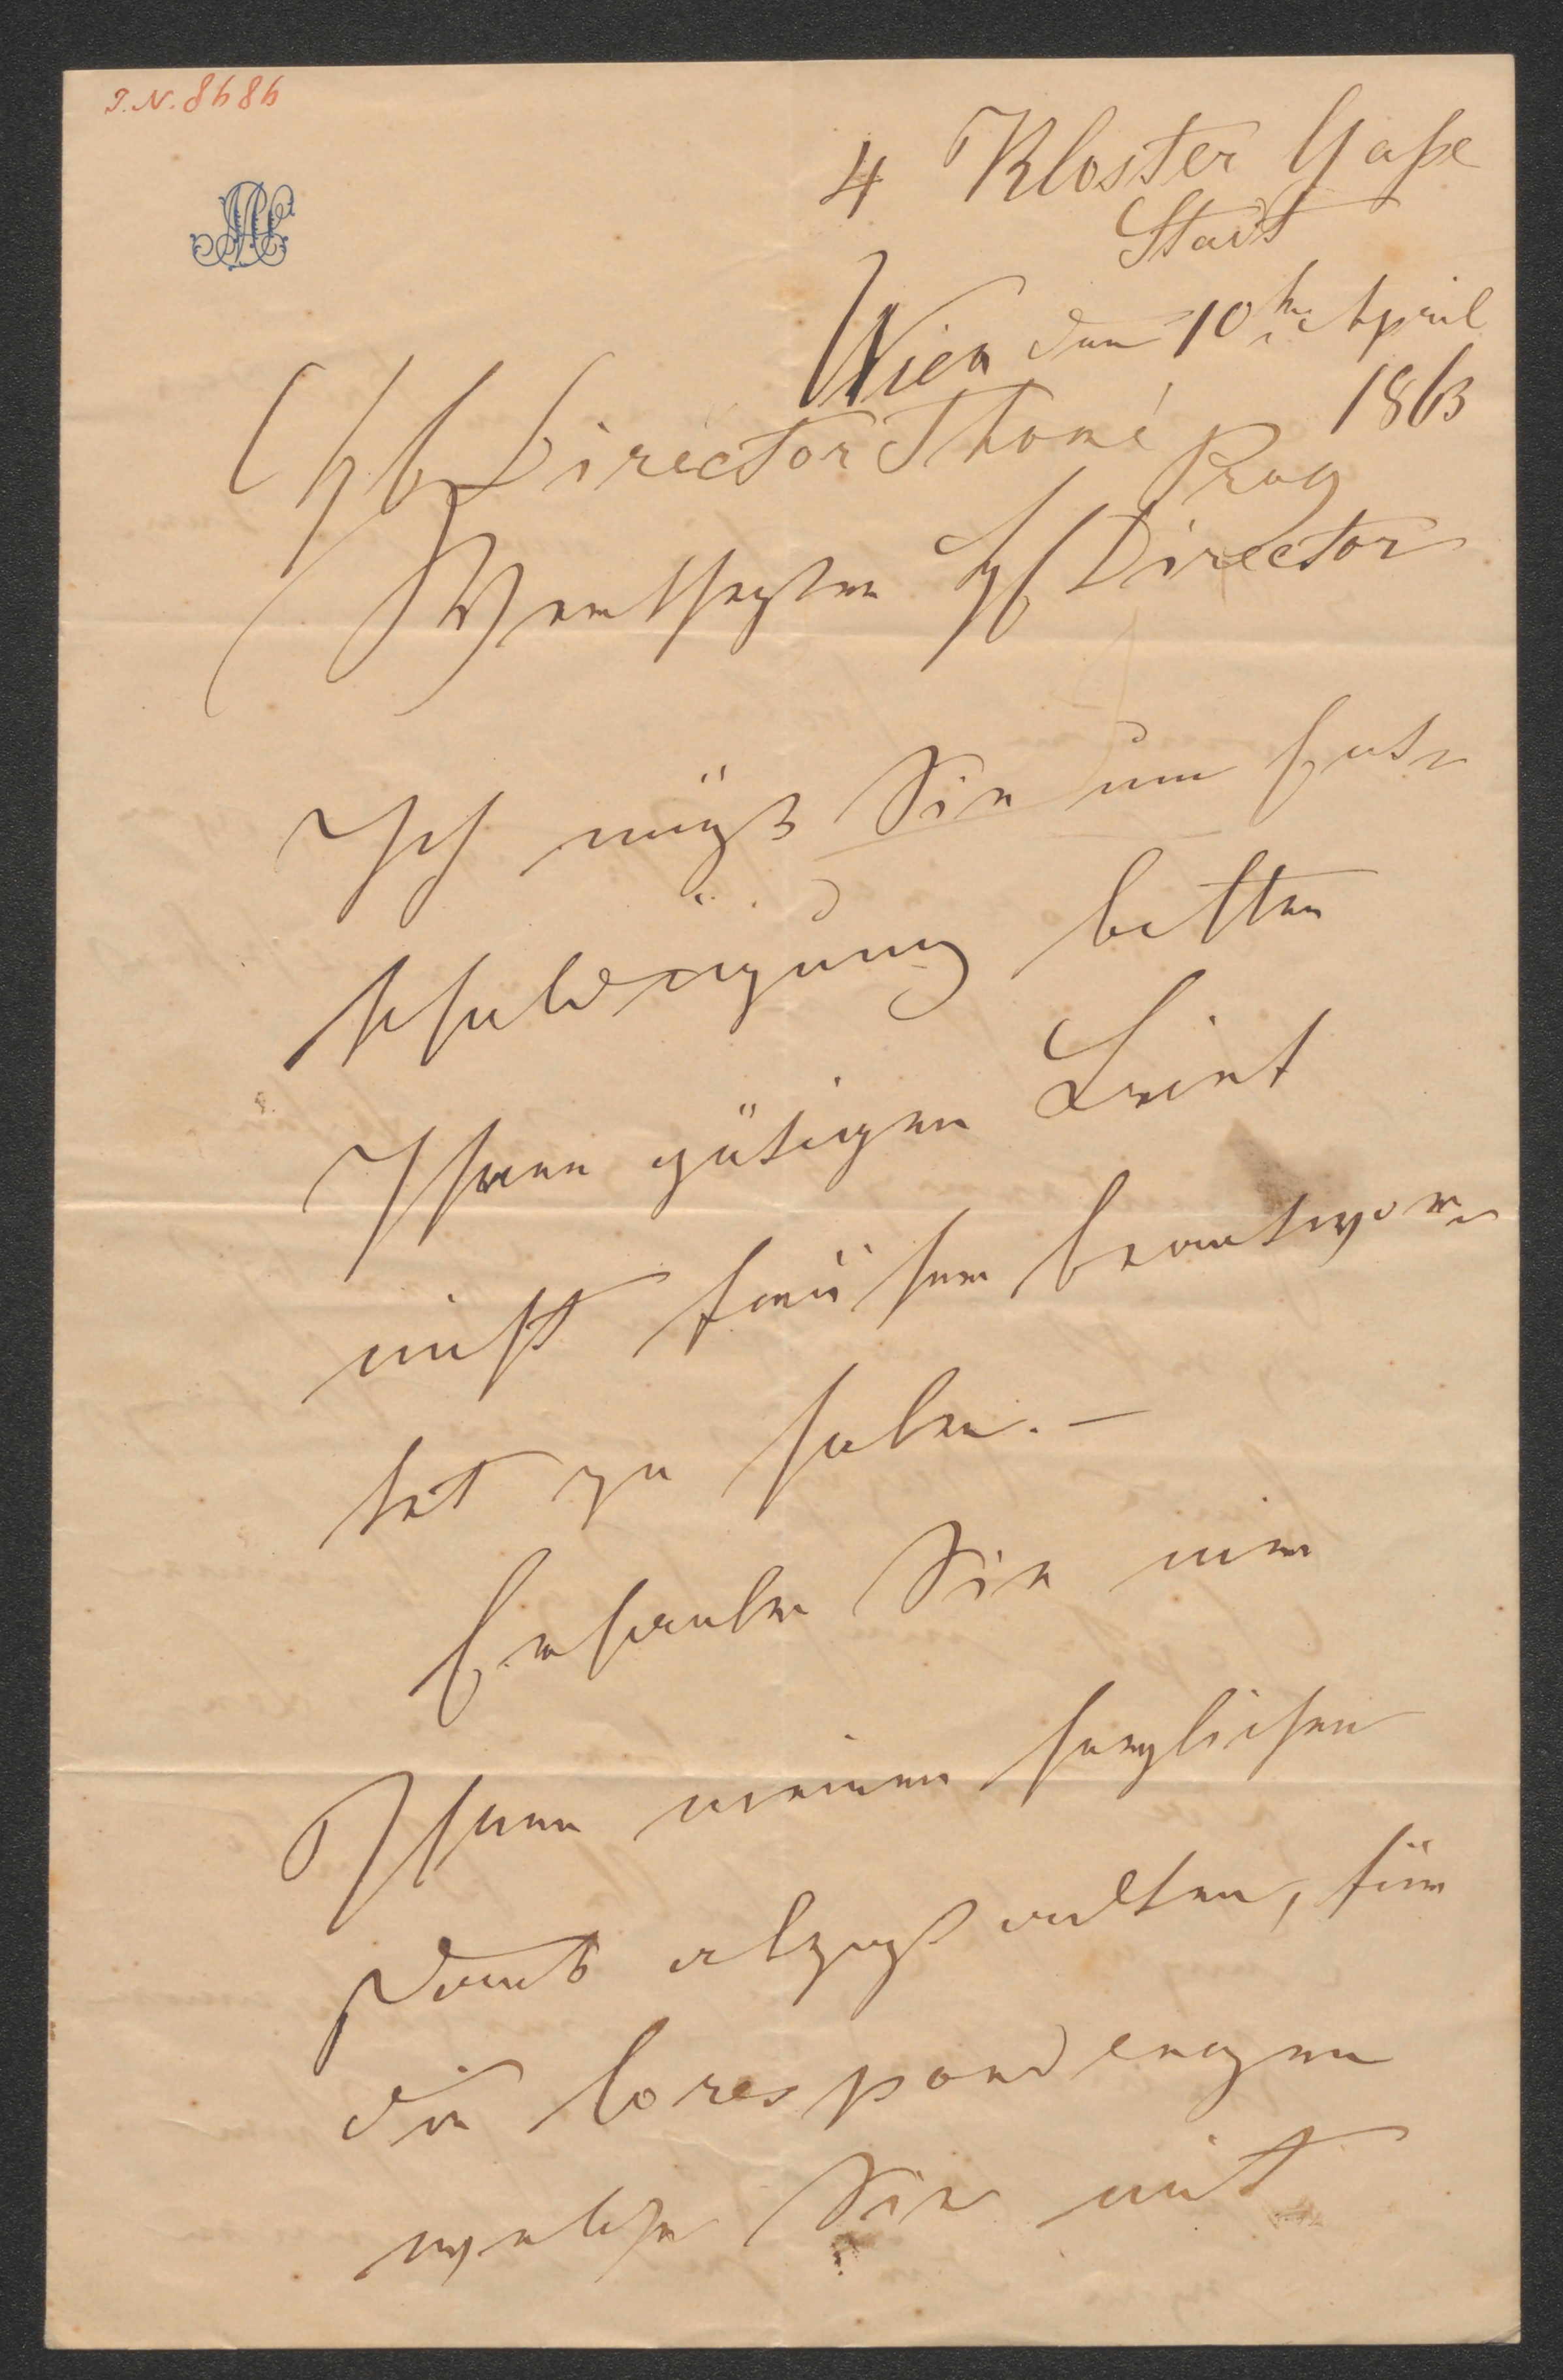 I.N. 8686
4 Kloster Gaße
Stadt
Wien den 10ten April
1863
Director Thomé
Prag
Werthester H Director
Ich muß Sie um Ent
schuldigung bitten
Ihren gütigen Brief
nicht früher beantwor
tet zu haben. –
Erlauben Sie mir
Ihnen meinen herzlichen
Dank abzustatten, für
die Corespondenzen
welche Sie mit